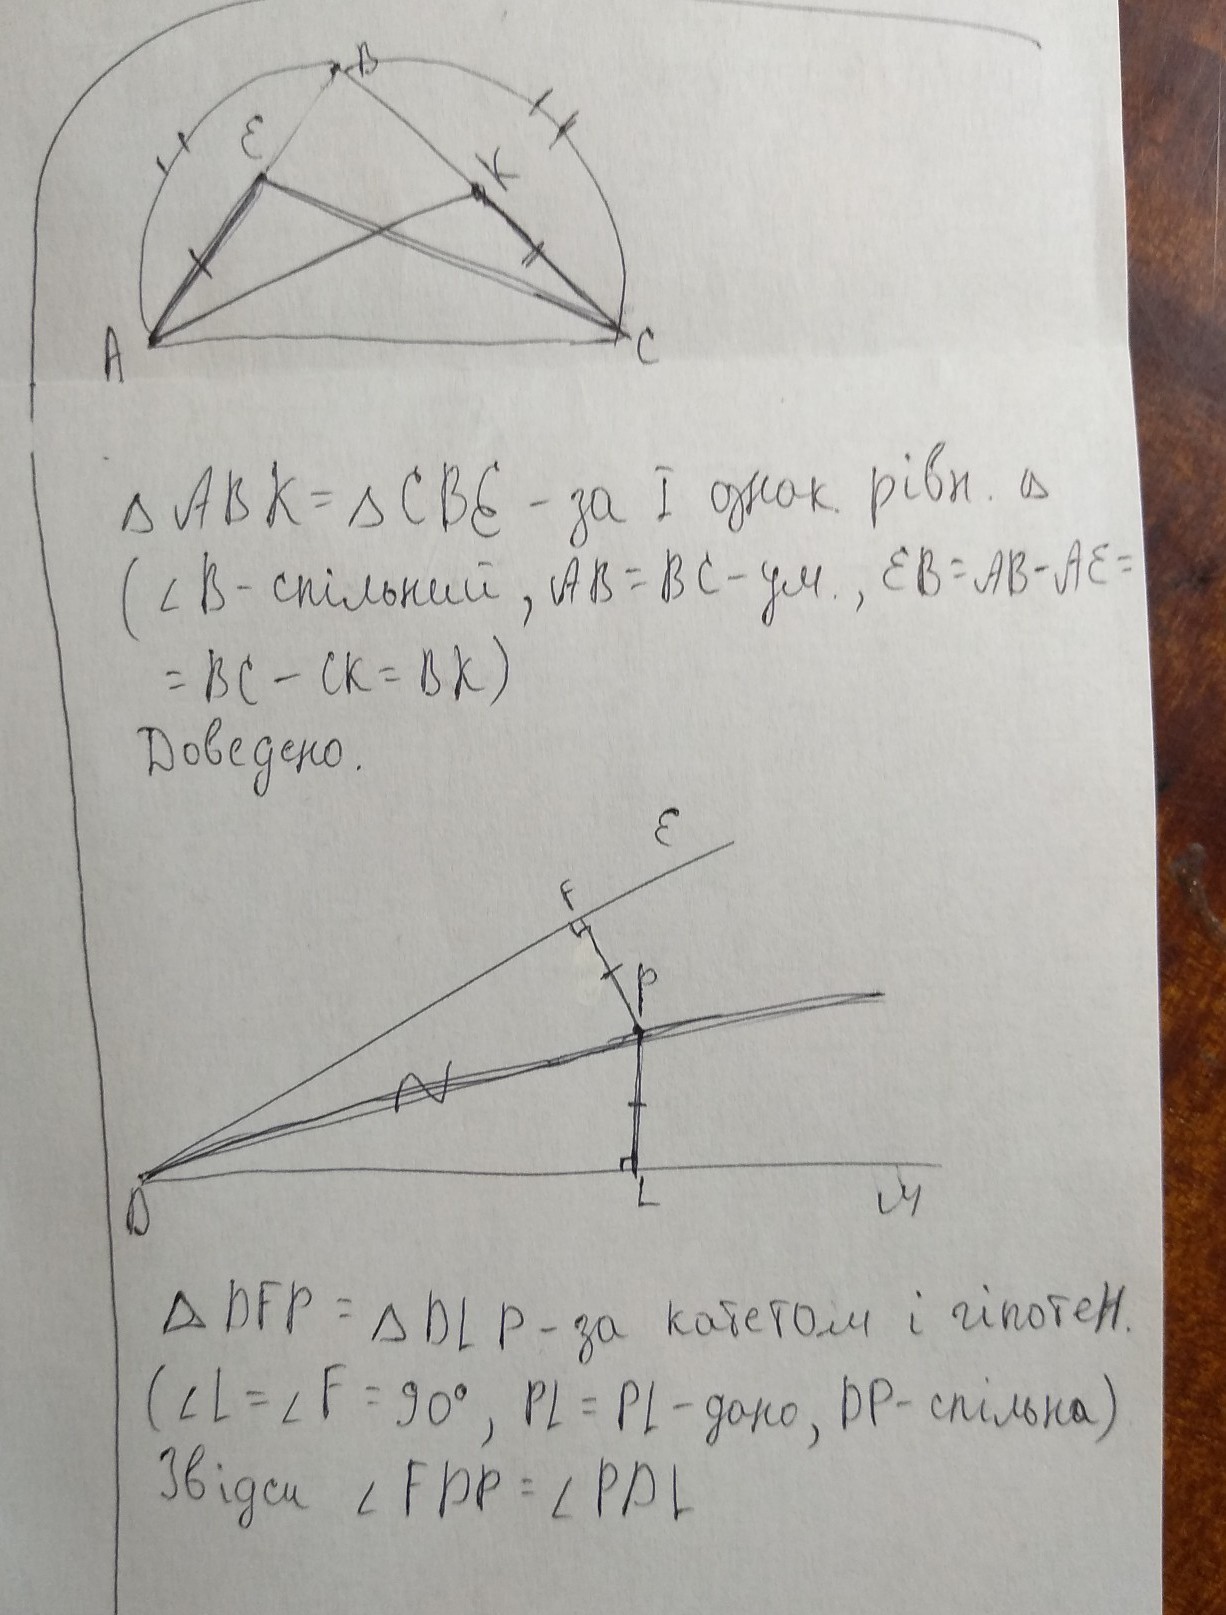 B
E
K
A
C
△ABK = △CBE - за I ознак. рівн. △
(∠B - спільний, AB = BC - ум., EB = AB - AE =
= BC - CK = BK)
Доведено.
E
F
P
N
D
L
M
△DFP = △DLP - за катетом і гіпотен.
(∠L = ∠F = 90°, PL = PL - дано, DP - спільна)
Звідси ∠FDP = ∠PDL